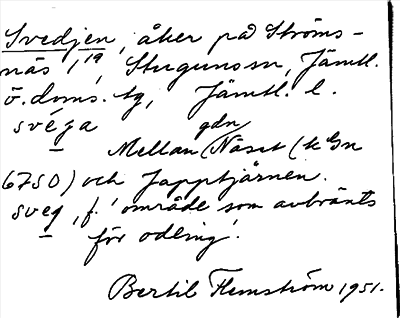 Svedjen, åker på Ströms-
näs 1/19, Stugunssn, Jämtl.
ö. doms. tg, Jämtl. l.
svéga gdn
Mellan Näset (k Gn
6750) och Japptjärnen.
sveg, f. 'område som avbränts
för odling'.
Bertil Flemström 1951.